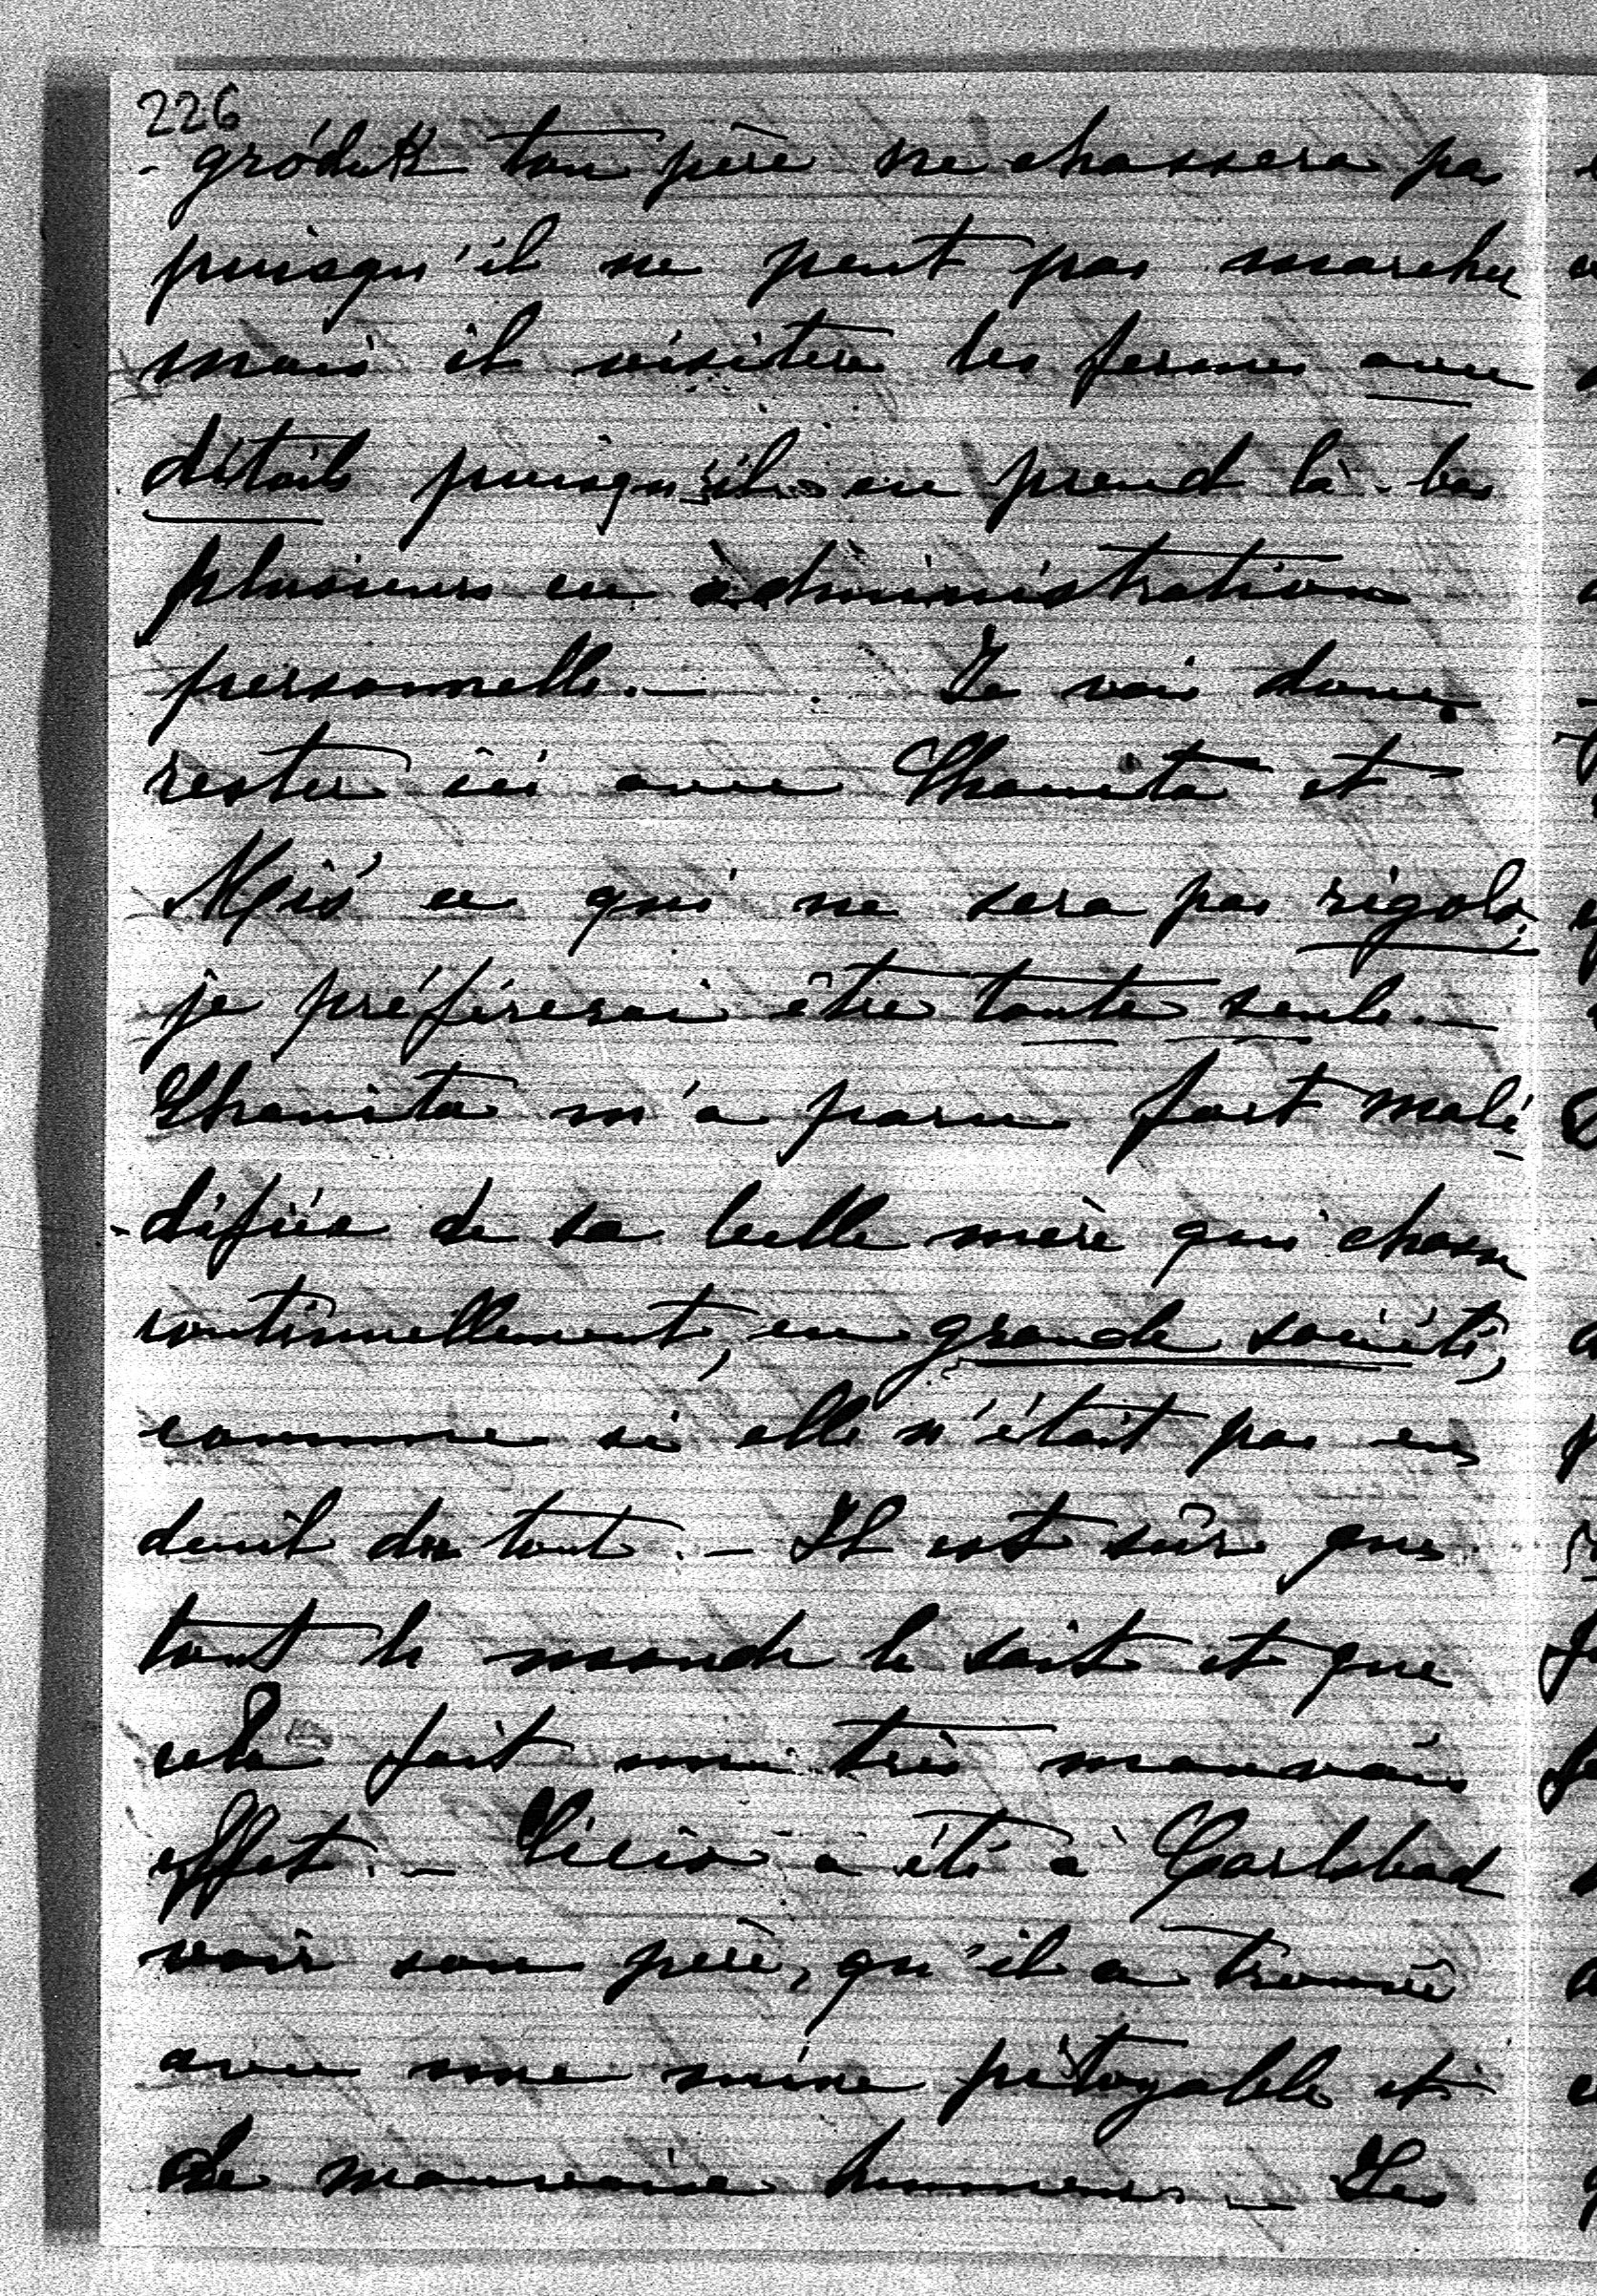 226
- gródek ton père ne chassera pas
puisqu'il ne peut pas marcher
mais il visitera les fermes avec
détails puisqu'il en prend là-bas
plusieurs en administration
personnelle. — Je vais donc
rester ici avec Thamita et
Miss ce qui ne sera pas rigolo,
je préférerai être toute seule. —
Thamita m'a paru fort malé
- difiée de sa belle mère qui chasse
continuellement, en grande société,
comme si elle n'était pas en
deuil du tout. — Il est sûr que
tout le monde le sait et que
cela fait un très mauvais
effet. — a été à Carlsbad
voir son père, qu'il a trouvé
avec une mine pitoyable et
de mauvaise humeur. — Les